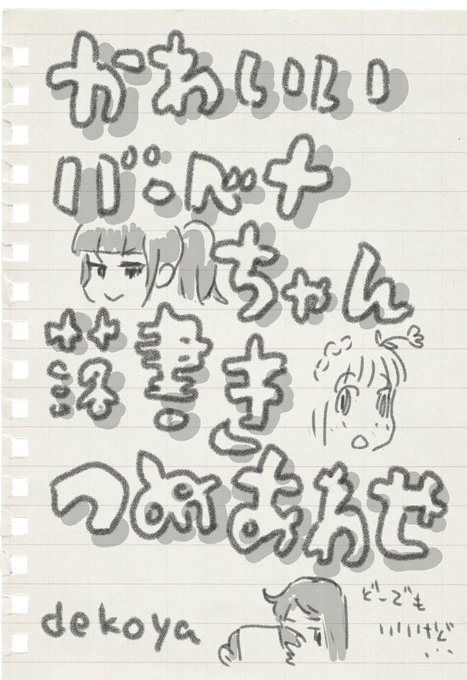 かわいい
バーベナ
ちゃん
落書き
つめあわせ
dekoya
どーでも
いいけど
…